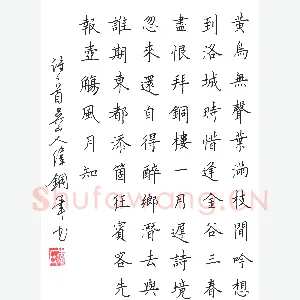 黄鸟無聲葉滿枝閒吟想
到洛城時惜逢金谷三春
盡恨拜銅樓一月遲詩境
忽來還自得醉鄉潛去與
誰期東都添箇狂賓客先
報壺觴風月知
Shufawang.CN